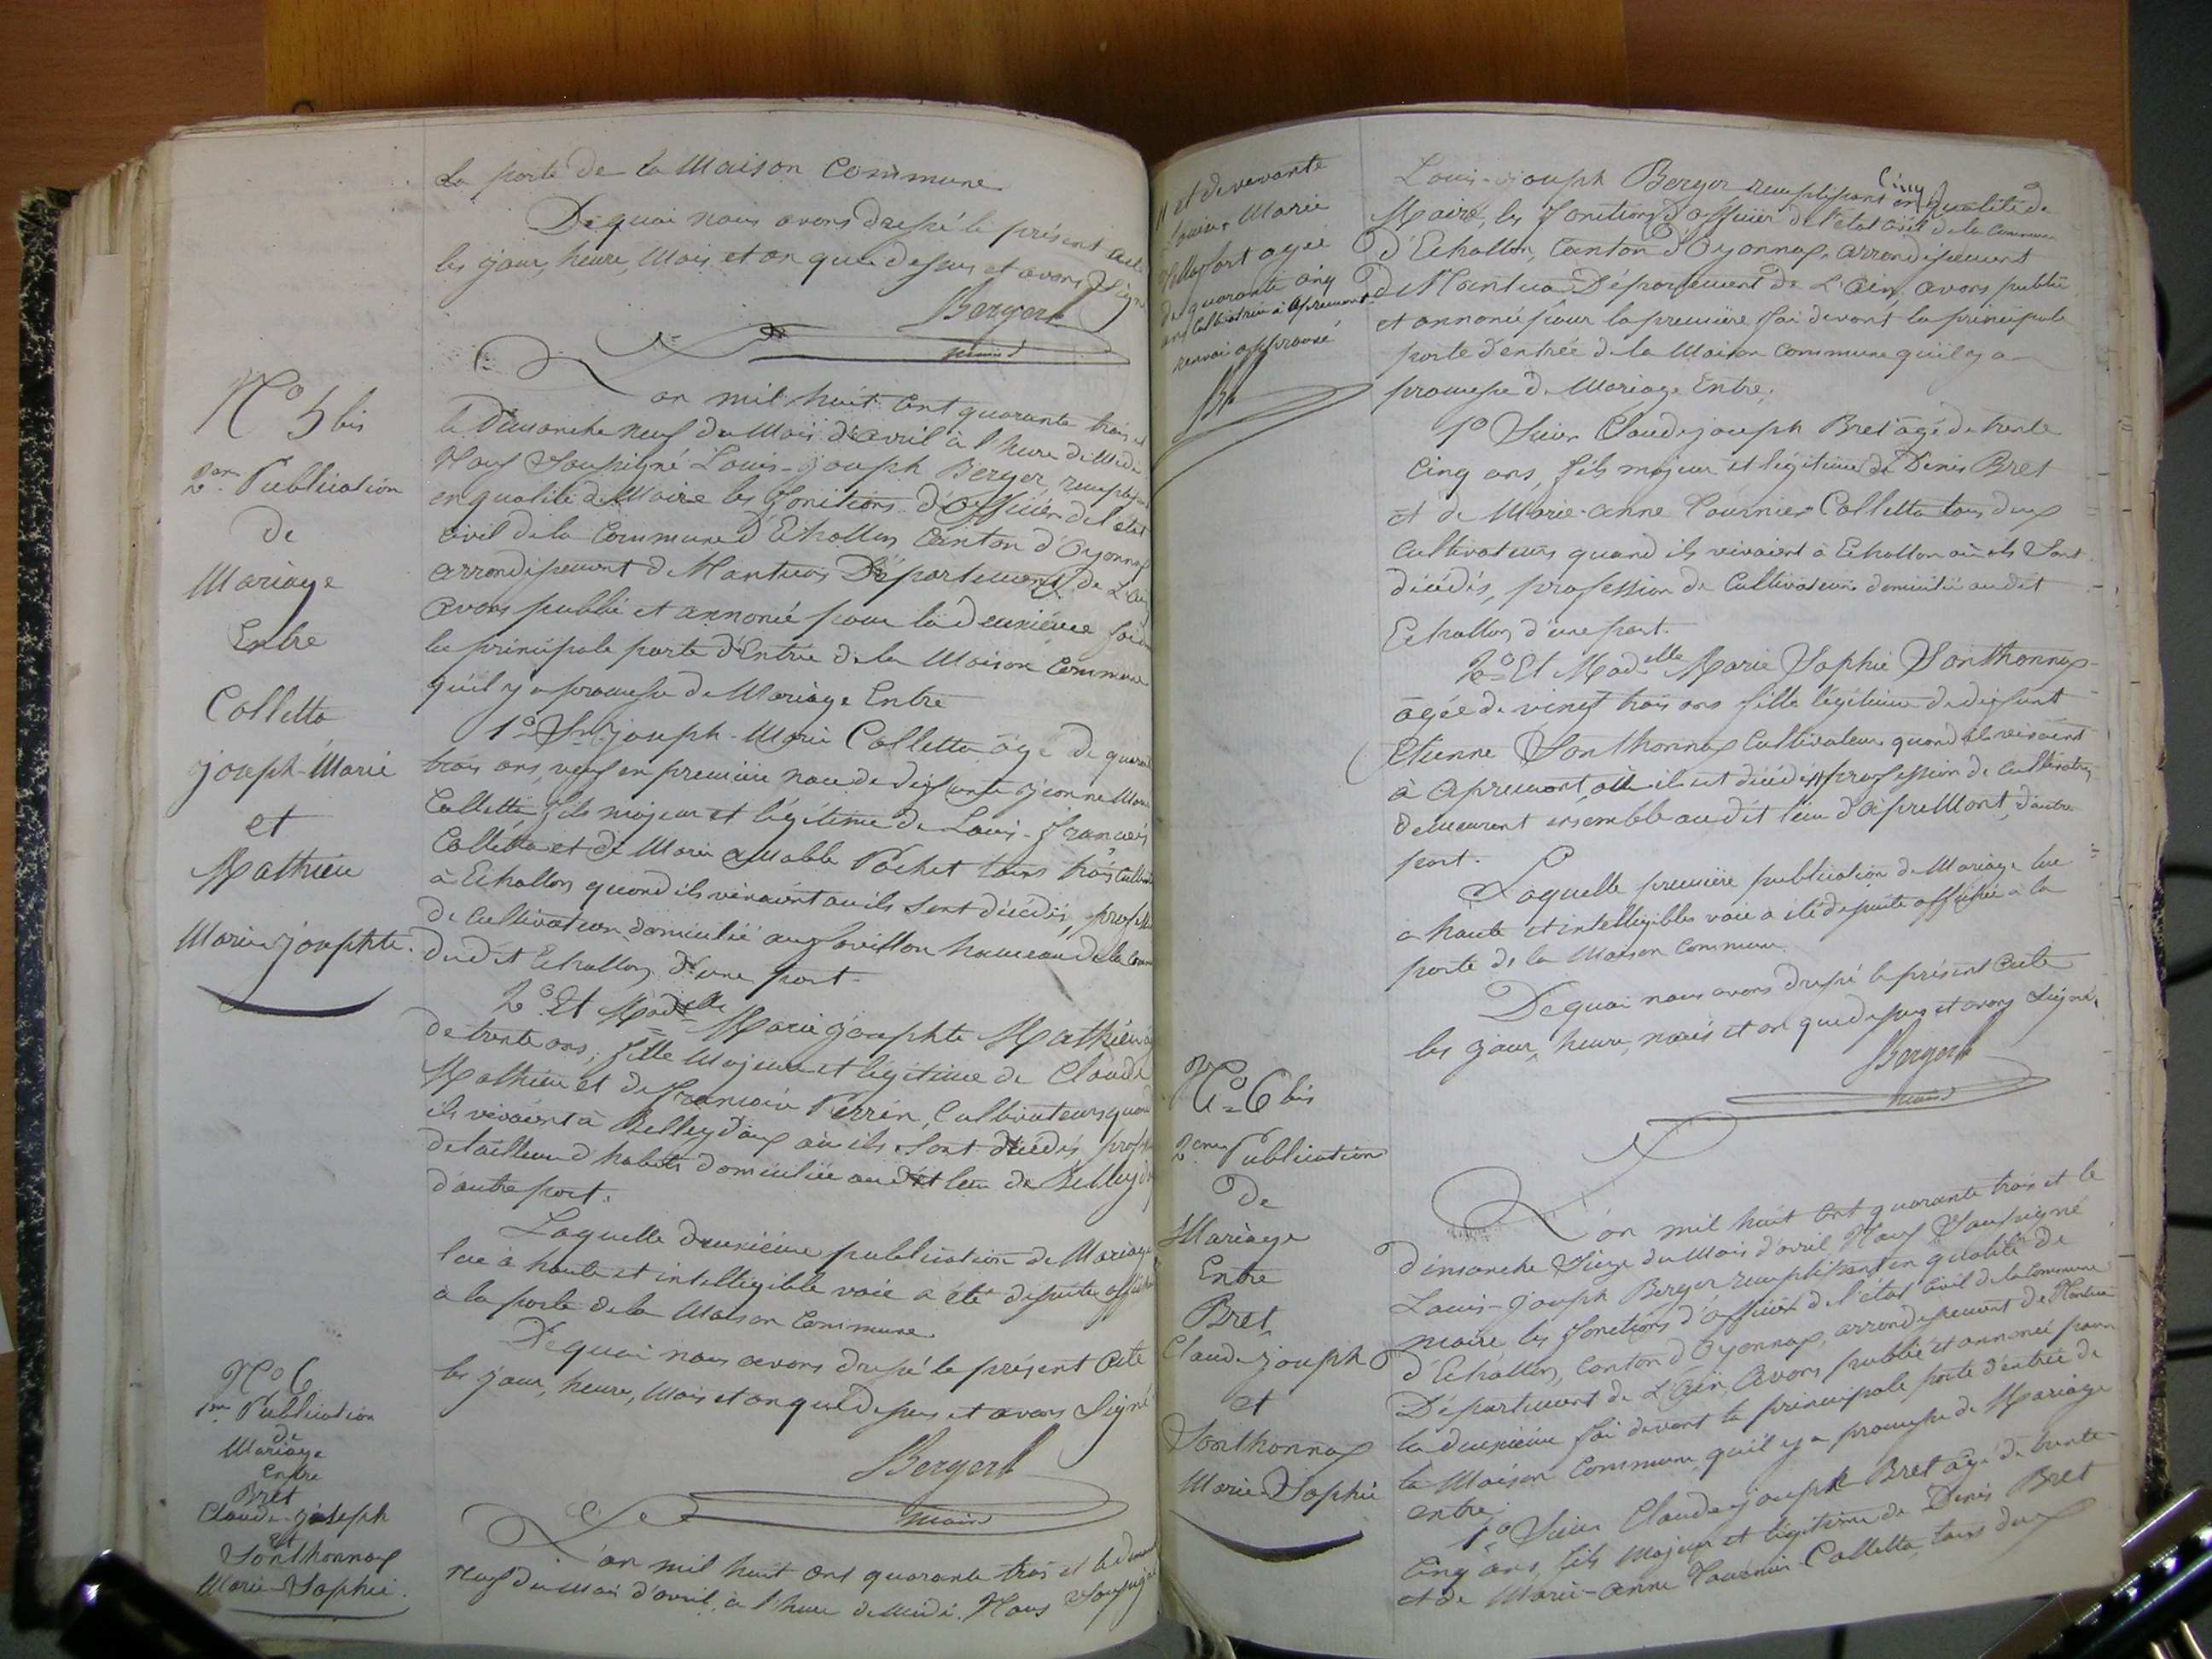 La porte de la Maison Commune
De quoi nous avons dressé le présent acte
les jour, heure, Mois et an que dessus et avons Signé
Berger
maire
N° 5 bis
2me Publication
de
Mariage
Entre
Colletta
joseph-Marie
et
Mathieu
Marie josephte.
L'an mil huit cent quarante trois et
le Dimanche neuf du Mois d'avril à l'heure de Midi
Nous Soussigné Louis-joseph Berger, remplissant
en qualité de Maire les fonctions d'officier de l'état
civil de la Commune d'Echallon Canton d'Oyonnax
arrondissement de Nantua Département de L'Ain
avons publié et annoncé pour la deuxième fois
la principale porte d'Entrée de la Maison Commune
qu'il y a promesse de Mariage Entre
1° Sr joseph-Marie Colletta âgé de quarante
trois ans, veuf en première noce de défunte jeanne Marie
Colletta, fils majeur et légitime de Louis-françois
Colletta et de Marie aMable Pochet tous trois cultivateurs
à Echallon quand ils vivaient où ils sont décédés, profession
de cultivateur domicilié aux hameau de la Commune
dudit Echallon, d'une part.
2° Et Madelle Marie josephte Mathieu âgée
de trente ans, fille Majeure et légitime de Claude
Mathieu et de françoise Perrin, Cultivateurs quand
ils vivaient à Belleydoux où ils sont décédés profession
de tailleuse d'habits domiciliée audit lieu de Belleydoux
d'autre part.
Laquelle deuxième publication de Mariage
lue à haute et intelligible voie a été desuite affichée
à la porte de la Maison Commune.
De quoi nous avons dressé le présent Acte
les jour, heure, Mois et an que dessus et avons Signé
Berger
maire
N° 6
1re Publication
de
Mariage
Entre
Bret
Claude-joseph
et
Sonthonnax
Marie-Sophie.
L'an mil huit cent quarante trois et le dimanche
neuf du Mois d'avril, à l'heure de Midi. Nous Soussigné
et de vevante
Louise Marie
Maffort agée
de quarante cinq
ans Cultivatrice à Apremont
renvoi approuvé
Br
Louis-joseph Berger remplissant en qualité de
Maire, les fonctions d'officier de l'état civil de la Commune
d'Echallon, Canton d'Oyonnax, arrondissement
de Nantua Département de L'Ain, avons publié
et annoncé pour la première foi devant la principale
porte d'entrée de la Maison Commune qu'il y a
promesse de Mariage Entre;
1° Sieur Claude joseph Bret âgé de trente
cinq ans, fils majeur et légitime de Denis Bret
et de Marie-anne Tournier Colletta tous deux
Cultivateurs quand ils vivaient à Echallon où ils Sont
décédés, profession de Cultivateur domicilié audit
Echallon, d'une part.
2° Et Madelle Marie Sophie Sonthonnax
âgée de vingt trois ans fille légitime de défunt
Etienne Sonthonnax Cultivateur quand il vivaient
à Apremont, où il est décédé profession de cultivatrice
demeurant ensemble audit lieu d'apreMont, d'autre
part.
Laquelle première publication de Mariage lue
a haute et intelligibles voie a été desuite affichée à la
porte de la Maison Commune.
De quoi nous avons dressé le présent Acte
les jour, heure, mois et an que dessus et avons Signé.
Berger
maire
N° 6 bis
2eme Publication
De
Mariage
Entre
Bret
Claude joseph
et
Sonthonnax
Marie-Sophie
L'an mil huit cent quarante trois et le
dimanche Sieze du Mois d'avril, Nous Soussigné
Louis-joseph Berger remplissant en qualité de
maire les fonctions d'officier de l'état civil de la Commune
d'Echallon, canton d'Oyonnax, arrondissement de Nantua
Département de L'Ain, Avons publié et annoncé pour
la deuxième foi devant la principale porte d'entrée de
la Maison Commune, qu'il y a promesse de Mariage
entre;
1° Sieur Claude joseph Bret âgé de trente
cinq ans, fils Majeur et légitime de Denis Bret
et de Marie-anne Tournier Colletta, tous deux